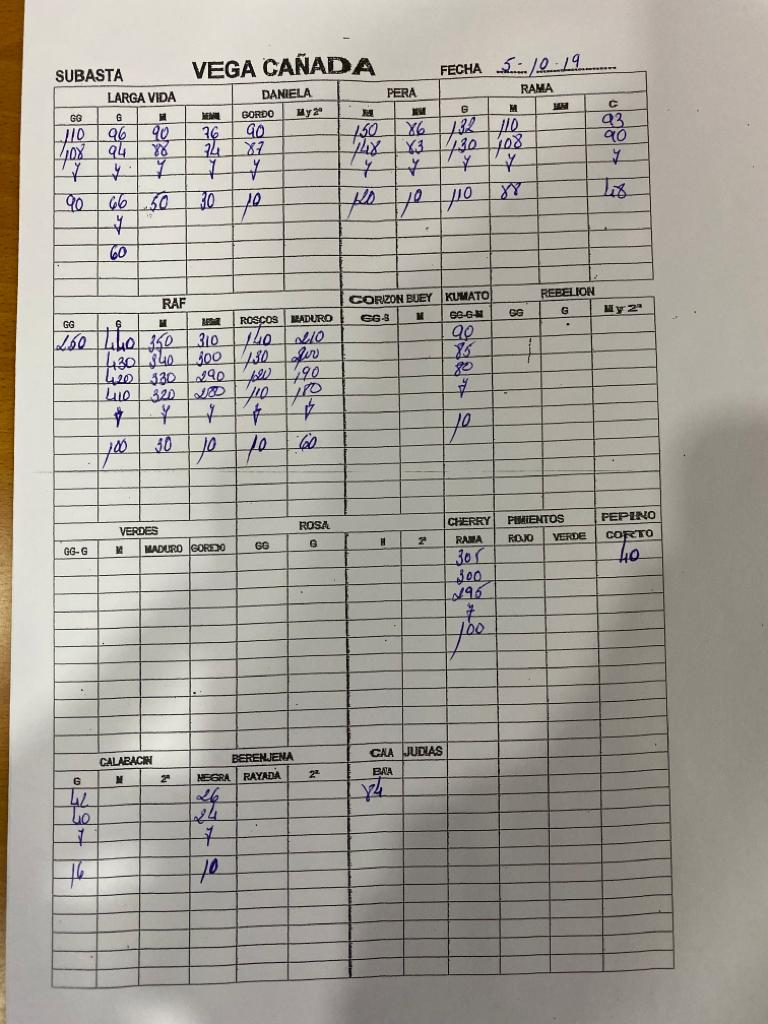 SUBASTA VEGA CAÑADA FECHA 5-10-19
LARGA VIDA DANIELA PERA RAMA
GG G M MM GORDO M y 2ª M MM G M MM C
110 96 90 76 90 150 86 132 110 93
108 94 88 74 87 148 83 130 108 90
y y y y y y y y y y
90 66 50 30 10 120 10 110 88 48
y
60
RAF CORIZON BUEY KUMATO REBELION
GG G M MM ROSCOS MADURO GG-G M GG-G-M GG G M y 2ª
250 440 350 310 140 210 90
430 340 300 130 200 85
420 330 290 120 190 80
410 320 280 110 180 y
y y y y y
100 30 10 10 60 10
VERDES ROSA CHERRY PIMIENTOS PEPINO
GG-G M MADURO GORDO GG G M 2ª RAMA ROJO VERDE CORTO
305 40
300
295
y
100
CALABACIN BERENJENA CAA JUDIAS
G M 2ª NEGRA RAYADA 2ª
42 26 84
40 24
y y
16 10